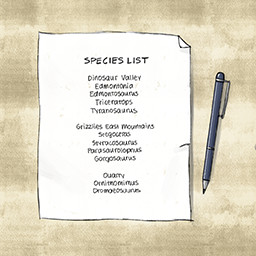 SPECIES LIST
Dinosaur Valley
Edmontonia
Edmontosaurus
Triceratops
Tyranosaurus
Grizzlies East Mountains
Stegoceras
Styracosaurus
Parasaurolophus
Gorgosaurus
Quarry
Ornithomimus
Dromaeosaurus